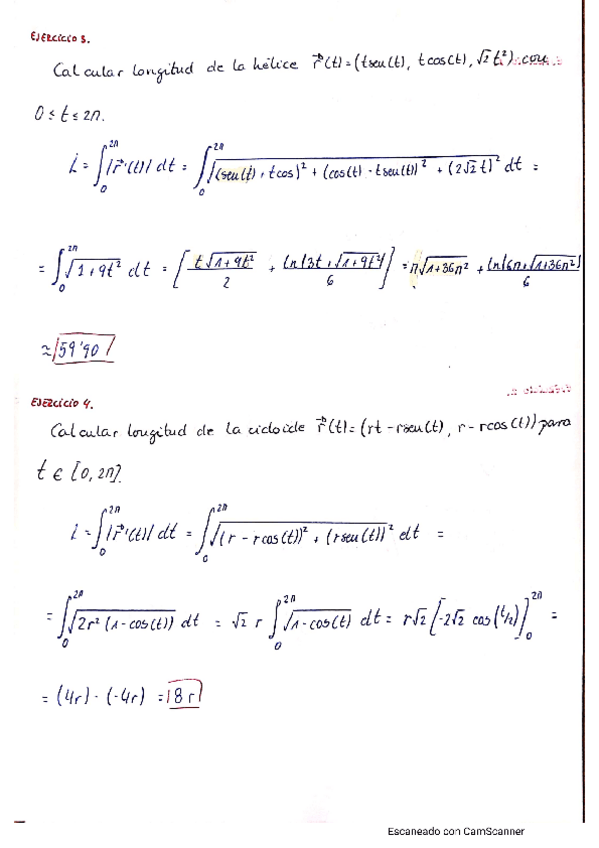 EJERCICIO 3.
Calcular longitud de la hélice r⃗(t)=(tsen(t), tcos(t), √2 t²) con
0 ≤ t ≤ 2π.
L = ∫₀^2π |r⃗'(t)| dt = ∫₀^2π √((sen(t) + tcos)² + (cos(t) - tsen(t))² + (2√2 t)²) dt =
= ∫₀^2π √(1+9t²) dt = [t√(1+9t²)/2 + ln|3t+√(1+9t²)|/6] = π√(1+36π²) + ln|6π+√(1+36π²)|/6
≈ |59'90|
EJERCICIO 4.
Calcular longitud de la cicloide r⃗(t)=(rt-rsen(t), r-rcos(t)) para
t ∈ [0, 2π].
L = ∫₀^2π |r⃗'(t)| dt = ∫₀^2π √((r-rcos(t))² + (rsen(t))²) dt =
= ∫₀^2π √(2r²(1-cos(t))) dt = √2 r ∫₀^2π √(1-cos(t)) dt = r√2 [-2√2 cos(t/2)]₀^2π =
= (4r) - (-4r) = |8r|
Escaneado con CamScanner